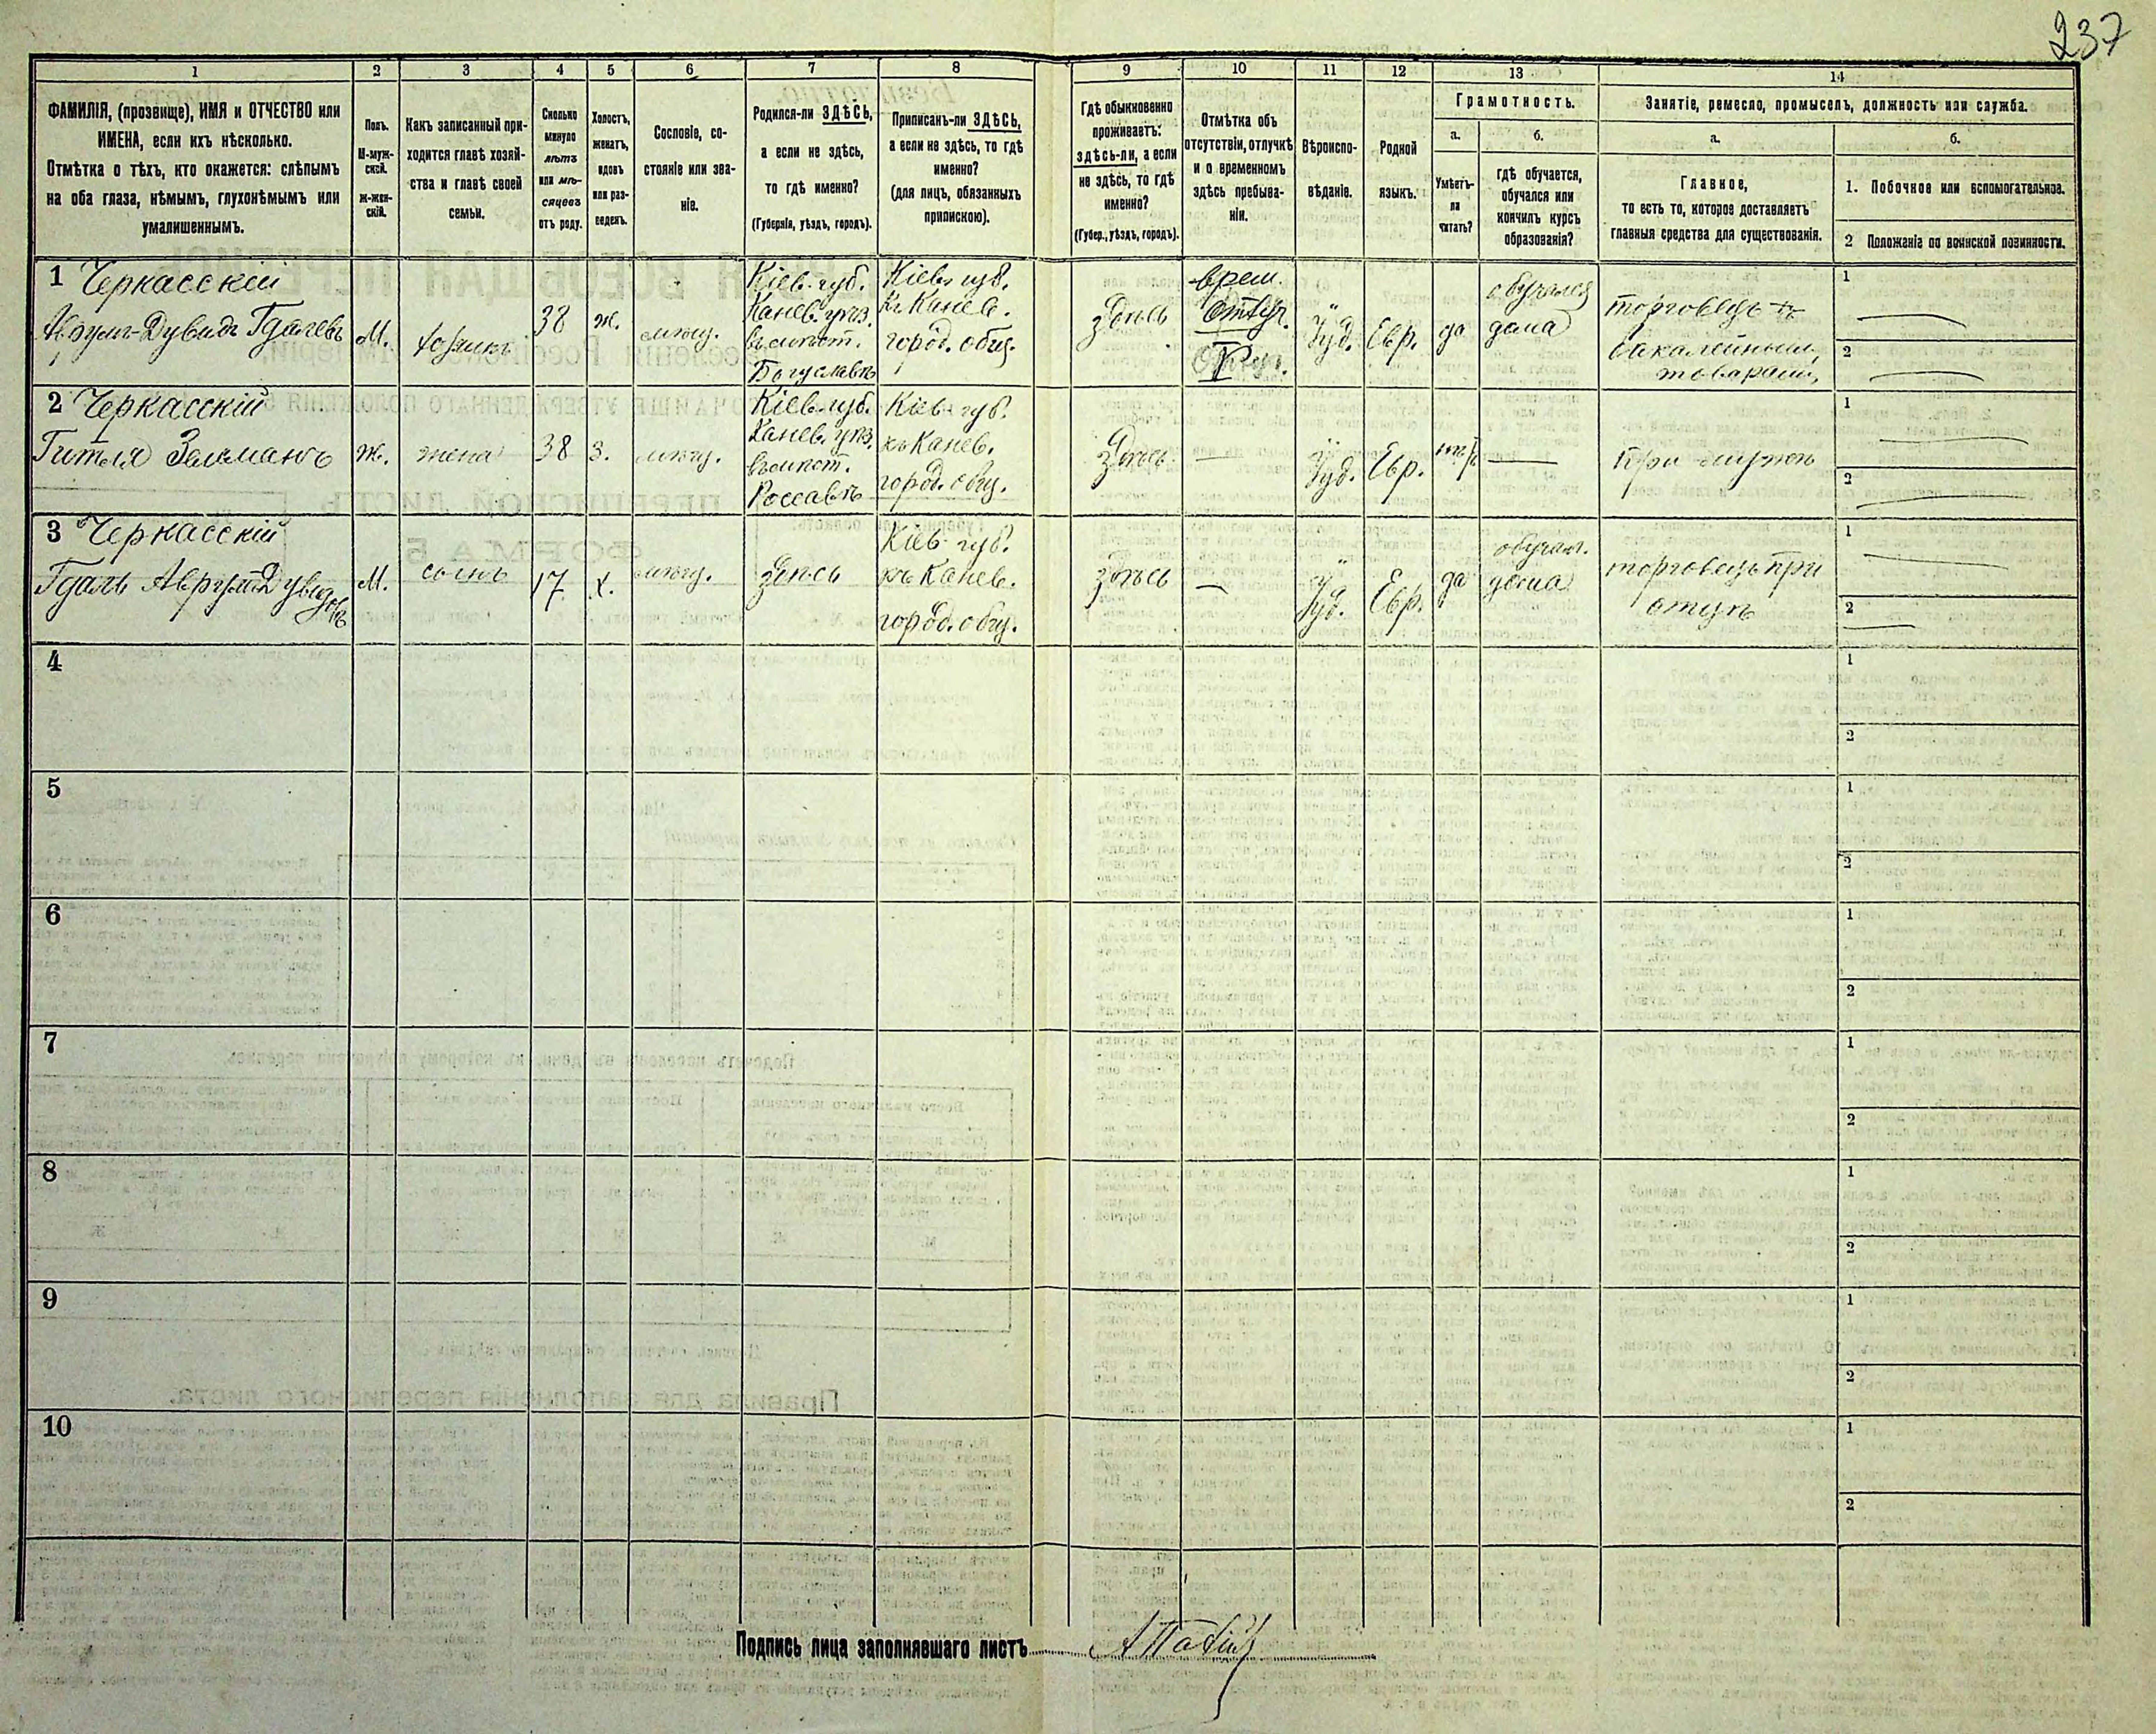 237
1 2 3 4 5 6 7 8 9 10 11 12 13 14
ФАМИЛІЯ, (прозвище), ИМЯ и ОТЧЕСТВО или
ИМЕНА, если ихъ нѣсколько.
Отмѣтка о тѣхъ, кто окажется: слѣпымъ
на оба глаза, нѣмымъ, глухонѣмымъ или
умалишеннымъ.
Полъ.
М-муж-
ской.
Ж-жен-
скій.
Какъ записанный при-
ходится главѣ хозяй-
ства и главѣ своей
семьи.
Сколько
минуло
лѣтъ
или мѣ-
сяцевъ
отъ роду.
Холостъ,
женатъ,
вдовъ
или раз-
веденъ.
Сословіе, со-
стояніе или зва-
ніе.
Родился-ли ЗДѢСЬ,
а если не здѣсь,
то гдѣ именно?
(Губернія, уѣздъ, городъ).
Приписанъ-ли ЗДѢСЬ,
а если не здѣсь, то гдѣ
именно?
(для лицъ, обязанныхъ
припискою).
Гдѣ обыкновенно
проживаетъ:
здѣсь-ли, а если
не здѣсь, то гдѣ
именно?
(Губер., уѣздъ, городъ).
Отмѣтка объ
отсутствіи, отлучкѣ
и о временномъ
здѣсь пребыва-
ніи.
Вѣроиспо-
вѣданіе.
Родной
языкъ.
Грамотность.
а.
Умѣетъ-
ли
читать?
б.
гдѣ обучается,
обучался или
кончилъ курсъ
образованія?
Занятіе, ремесло, промыселъ, должность или служба.
а.
Главное,
то есть то, которое доставляетъ
главныя средства для существованія.
б.
1. Побочное или вспомогательное.
2 Положеніе по воинской повинности.
1 Черкасскій
Аврумъ-Дувидъ Гдалевъ
М.
хозяинъ
38
ж.
мѣщ.
Кіев. губ.
Канев. уѣз.
въ мѣст.
Богуславѣ
Кіев. губ.
къ Канев.
город. общ.
здѣсь
врем.
отлуч.
Іуд.
Евр.
да
обучался
дома
торговецъ
бакалейным.
товарами
1
2
2 Черкасскій
Гитля Зельманов
Ж.
жена
38
З.
мѣщ.
Кіев. губ.
Канев. уѣз.
въ мѣст.
Россавѣ
Кіев. губ.
къ Канев.
город. общ.
здѣсь
—
Іуд.
Евр.
нѣтъ
—
при мужѣ
1
2
3 Черкасскій
Гдаль Аврумъ Дувидовъ
М.
сынъ
17
х.
мѣщ.
здѣсь
Кіев. губ.
къ Канев.
город. общ.
здѣсь
—
Іуд.
Евр.
да
обучал.
дома
торговецъ при
отцѣ
1
2
4
1
2
5
1
2
6
1
2
7
1
2
8
1
2
9
1
2
10
1
2
Подпись лица заполнявшаго листъ